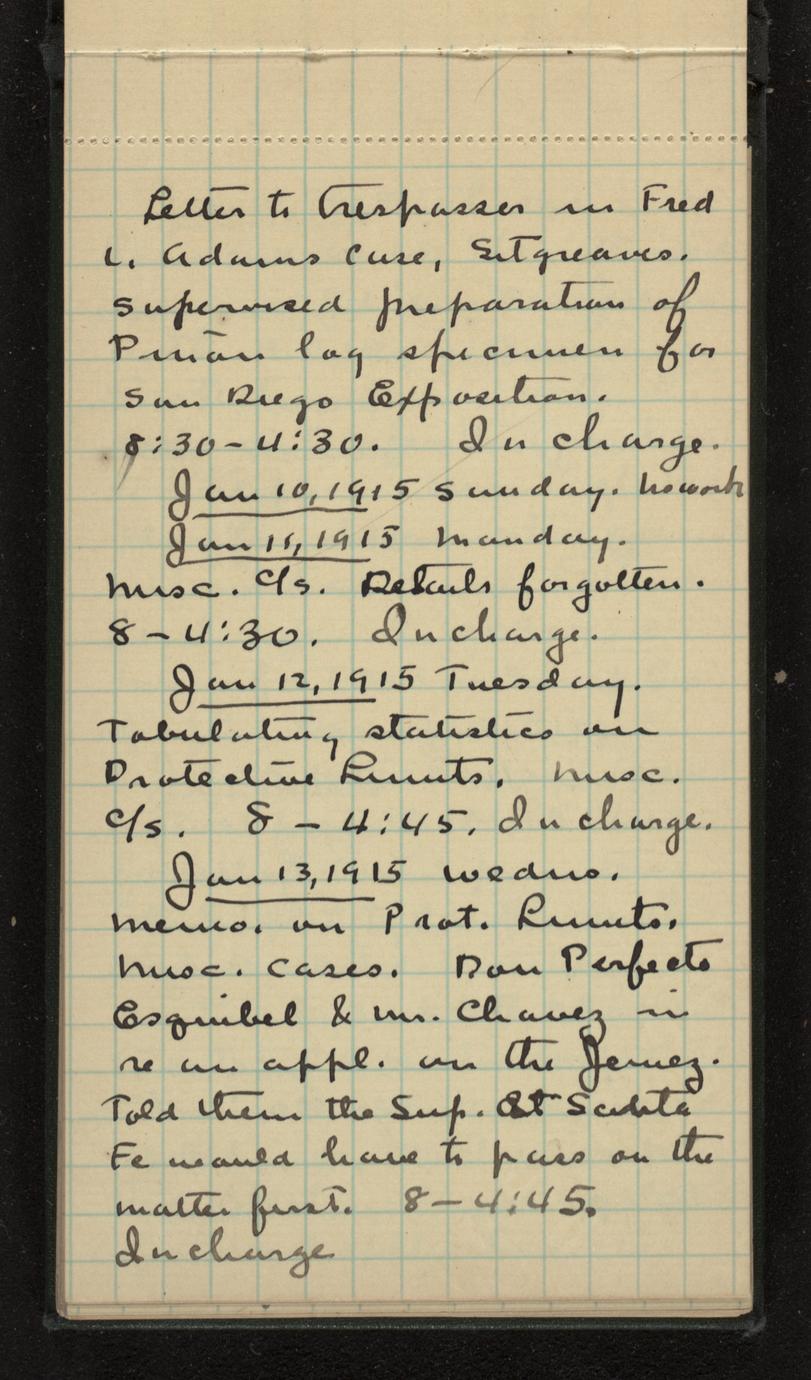 Letter to trespasser in Fred
L. Adams case, Sitgreaves.
Supervised preparation of
Piñon log specimen for
San Diego Exposition.
8:30-4:30. In charge.
Jan 10, 1915 Sunday. No work
Jan 11, 1915 Monday.
Misc. c/s. Details forgotten.
8-4:30. In charge.
Jan 12, 1915 Tuesday.
Tabulating statistics on
Protective Limits. Misc.
c/s. 8-4:45. In charge.
Jan 13, 1915 Wednes.
Memo. on Prot. Limits.
Misc. cases. Don Perfecto
Esquibel & Mr. Chavez in
re an appl. on the Jemez.
Told them the Sup. at Santa
Fe would have to pass on the
matter first. 8-4:45.
In charge